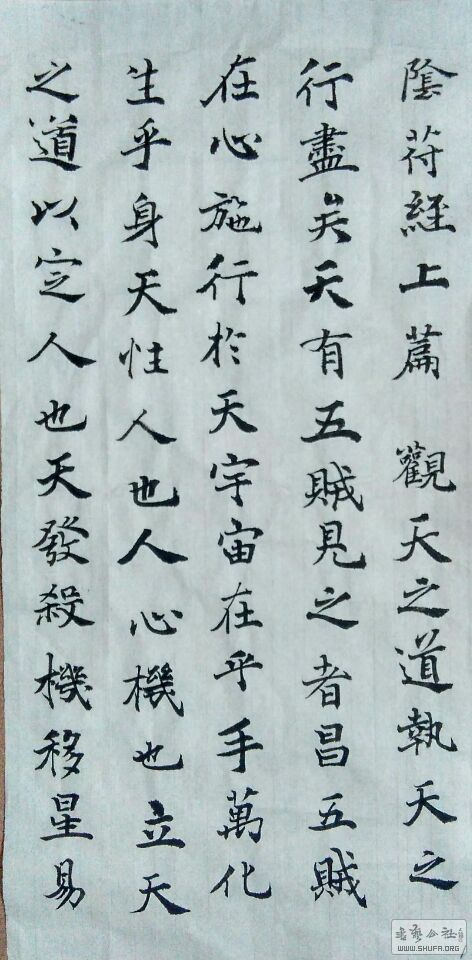 陰符經上篇 觀天之道執天之
行盡矣天有五賊見之者昌五賊
在心施行於天宇宙在乎手萬化
生乎身天性人也人心機也立天
之道以定人也天發殺機移星易
書法公社
WWW.SHUFA.ORG